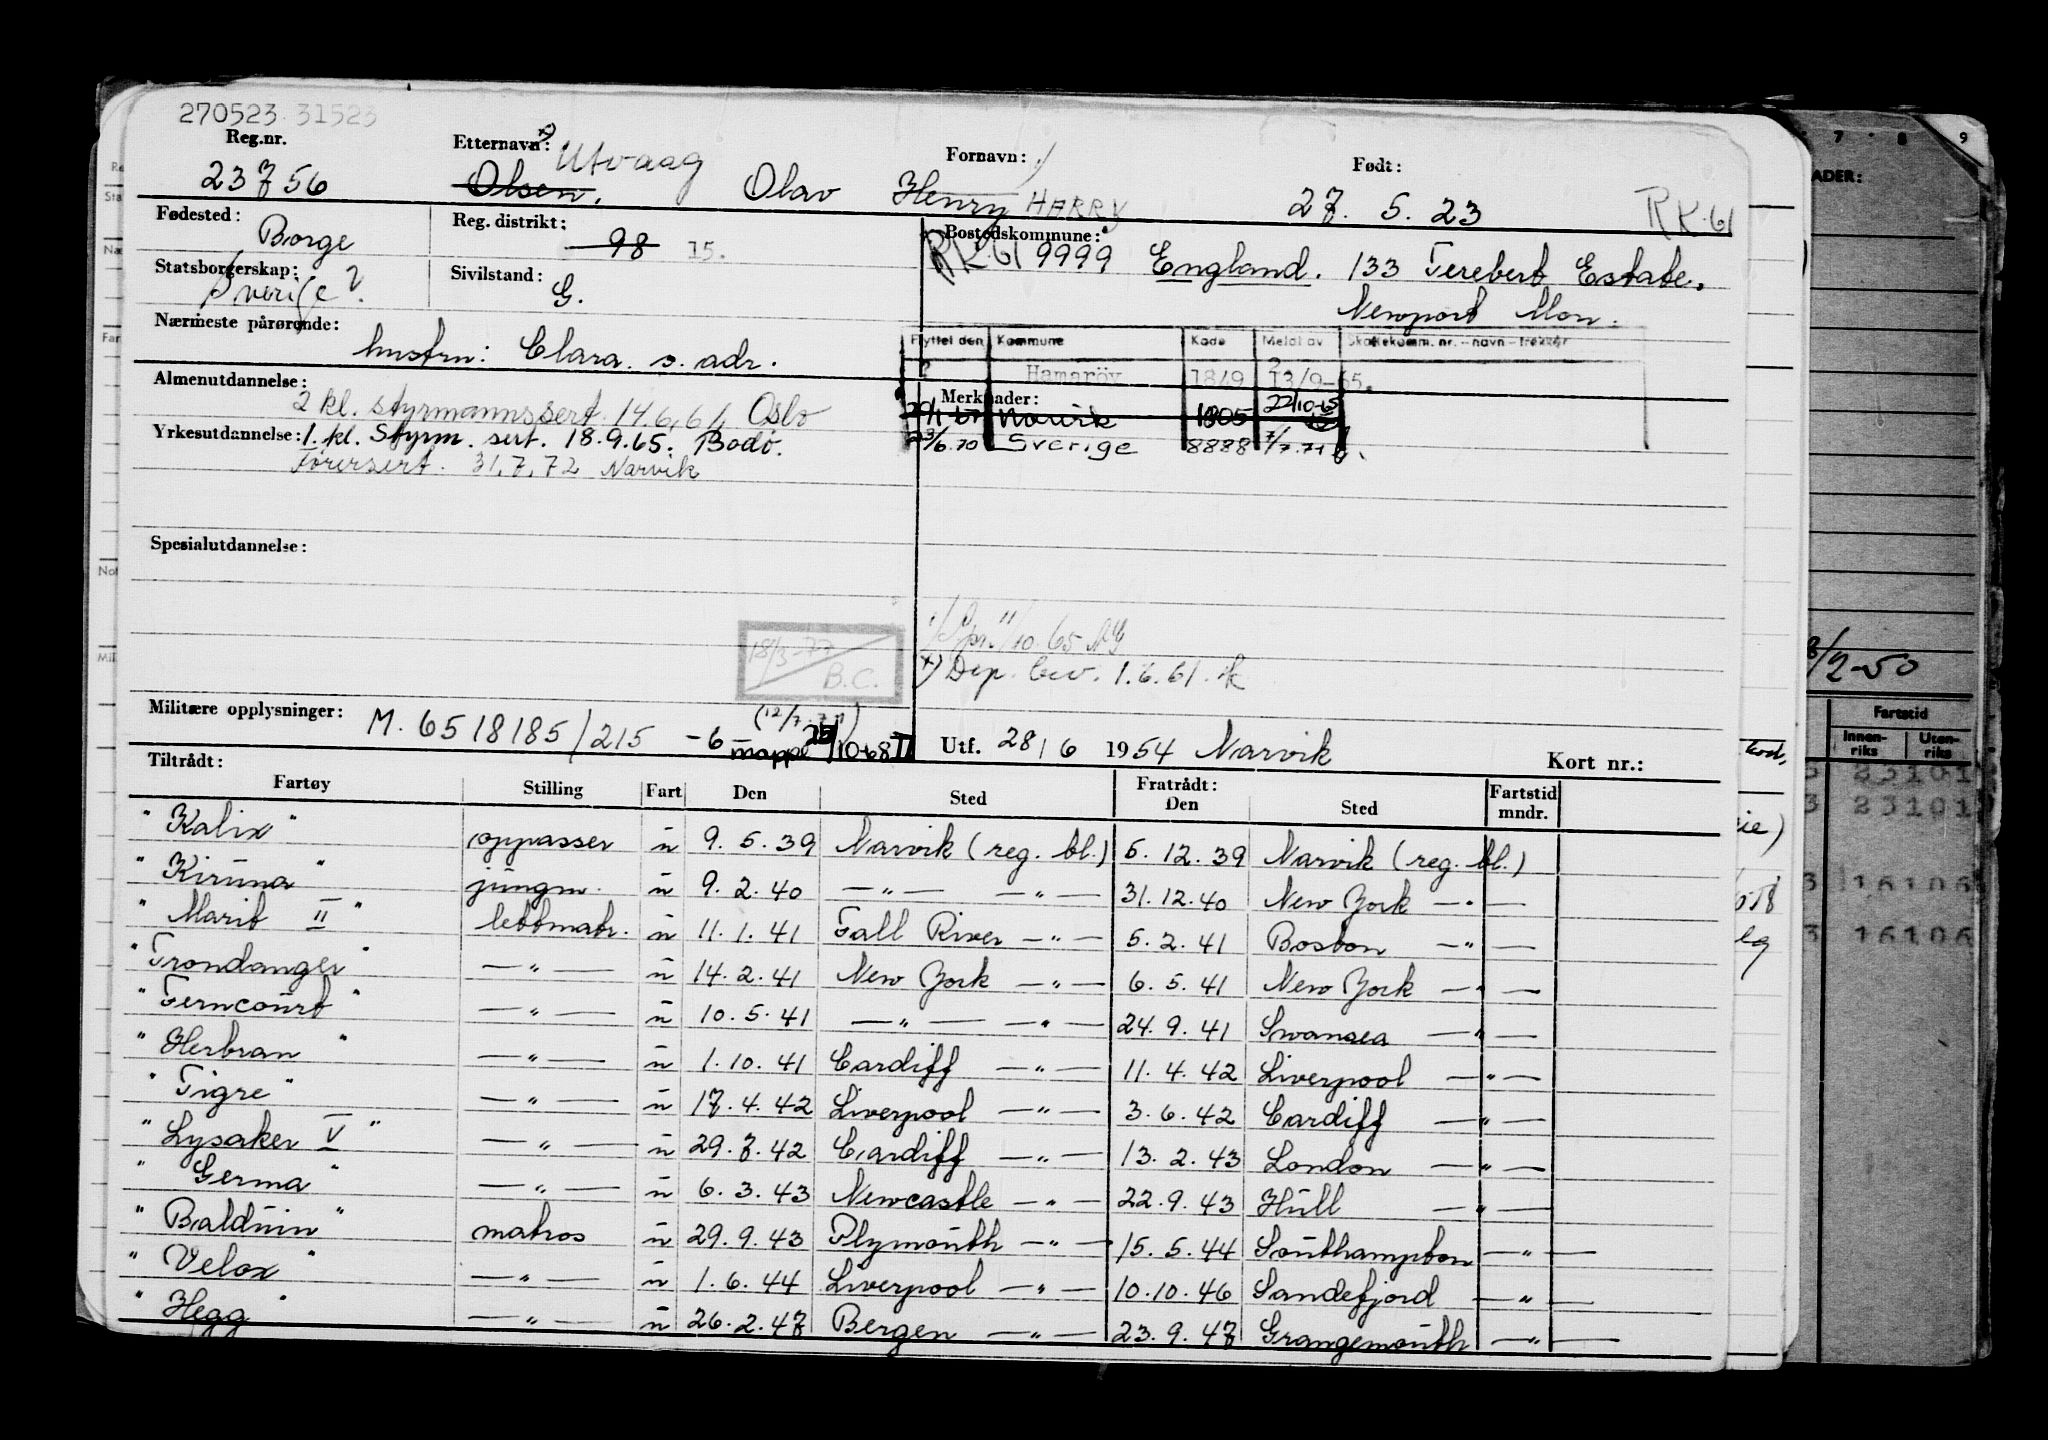 270523 31523
Reg.nr. Etternavn: x) Utvaag Fornavn: Født:
23756 Olsen, Olav Henry HARRY 27. 5. 23 RK.61
Fødested: Borge Reg. distrikt: 98 15. Bostedskommune:
RK.61 9999 England. 133 Terebert Estate,
Newport Mon.
Statsborgerskap: Sverige? Sivilstand: G.
Nærmeste pårørende: hustru: Clara. s. adr.
Flyttet den Kommune Kode Meldt av Skattekomm. nr. – navn – trekkår
? Hamaröy 1849 13/9-65.
Almenutdannelse: 2 kl. styrmannssert. 14.6.61, Oslo
Merknader:
Narvik 1805 22/10-65
Yrkesutdannelse: 1. kl. Styrm. sert. 18.9.65. Bodö.
23/6.70 Sverige 8888 7/7.71
Förersert. 31.7.72 Narvik
Spesialutdannelse:
18/3-77
B.C.
11/10.65
x) Dep. bev. 1.6.61.
Militære opplysninger: M. 6518185/215 -6- (12/7.71)
mappe 25/10-68 II
Utf. 28/6 1954 Narvik Kort nr.:
Tiltrådt: Fratrådt:
Fartøy Stilling Fart Den Sted Den Sted Fartstid mndr.
"Kalix" oppasser u 9. 5. 39 Narvik (reg. bl.) 5. 12. 39 Narvik (reg. bl.)
"Kiruna" jungm. u 9. 2. 40 —"— —"— 31. 12. 40 New York —"—
"Marit II" lettmatr. u 11. 1. 41 Fall River —"— 5. 2. 41 Boston —"—
"Trondanger" —"— u 14. 2. 41 New York —"— 6. 5. 41 New York —"—
"Ferncourt" —"— u 10. 5. 41 —"— —"— 24. 9. 41 Swansea —"—
"Herbran" —"— u 1. 10. 41 Cardiff —"— 11. 4. 42 Liverpool —"—
"Tigre" —"— u 17. 4. 42 Liverpool —"— 3. 6. 42 Cardiff —"—
"Lysaker V" —"— u 29. 7. 42 Cardiff —"— 13. 2. 43 London —"—
"Germa" —"— u 6. 3. 43 Newcastle —"— 22. 9. 43 Hull —"—
"Balduin" matros u 29. 9. 43 Plymouth —"— 15. 5. 44 Southampton —"—
"Velox" —"— u 1. 6. 44 Liverpool —"— 10. 10. 46 Sandefjord —"—
"Hegg" —"— u 26. 2. 47 Bergen —"— 23. 9. 47 Grangemouth —"—
7 8 9
ADER:
/2-50
Fartstid
Innenriks Utenriks
23101
23101
16106
16106